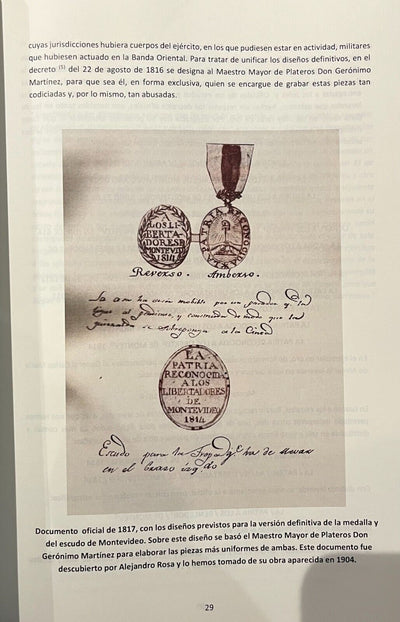 cuyas jurisdicciones hubiera cuerpos del ejército, en los que pudiesen estar en actividad, militares
que hubiesen actuado en la Banda Oriental. Para tratar de unificar los diseños definitivos, en el
decreto (5) del 22 de agosto de 1816 se designa al Maestro Mayor de Plateros Don Gerónimo
Martínez, para que sea él, en forma exclusiva, quien se encargue de grabar estas piezas tan
codiciadas y, por lo mismo, tan abusadas.
A
LOS LI
BERTA
DORES D
MONTEVIDEO
1814
LA PATRIA RECONOCIDA
Reverso. Amberso.
por un pasador
al y de modo que
a la Cinta
LA
PATRIA
RECONOCIDA
A LOS
LIBERTADORES
DE
MONTEVIDEO
1814
Escudo para la Tropa q.e ha de usar
en el brazo izq.do
Documento oficial de 1817, con los diseños previstos para la versión definitiva de la medalla y
del escudo de Montevideo. Sobre este diseño se basó el Maestro Mayor de Plateros Don
Gerónimo Martínez para elaborar las piezas más uniformes de ambas. Este documento fue
descubierto por Alejandro Rosa y lo hemos tomado de su obra aparecida en 1904.
29